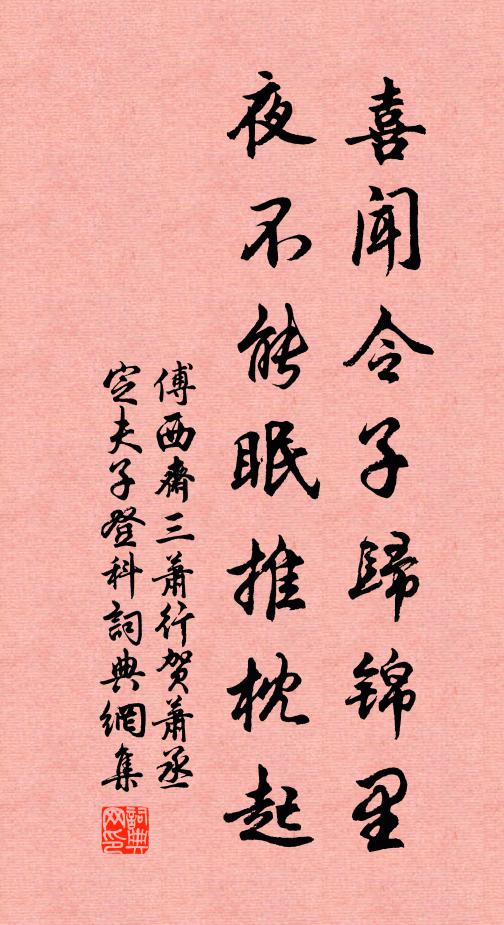 喜闻令子歸锦里
夜不能眠推枕起
傅西齋三萧行贺萧丞
定夫子登科詞典網集
詞典
网印